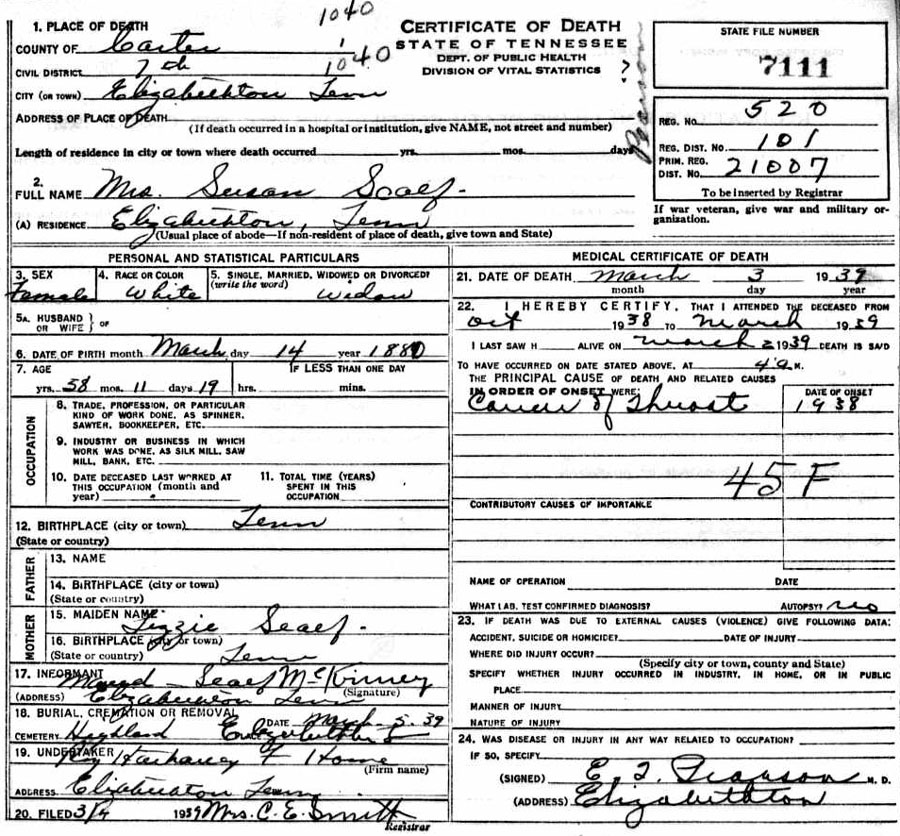 1040
1. PLACE OF DEATH
COUNTY OF Carter 1
CIVIL DISTRICT 7th 1040
CITY (OR TOWN) Elizabethton Tenn
ADDRESS OF PLACE OF DEATH
(If death occurred in a hospital or institution, give NAME, not street and number)
Length of residence in city or town where death occurred yrs. mos. days
CERTIFICATE OF DEATH
STATE OF TENNESSEE
DEPT. OF PUBLIC HEALTH
DIVISION OF VITAL STATISTICS
?
Pearson
STATE FILE NUMBER
7111
REG. NO. 520
REG. DIST. NO. 101
PRIM. REG. DIST. NO. 21007
To be inserted by Registrar
If war veteran, give war and military organization.
2. FULL NAME Mrs. Susan Scalf.
(A) RESIDENCE Elizabethton, Tenn
(Usual place of abode—If non-resident of place of death, give town and State)
PERSONAL AND STATISTICAL PARTICULARS
3. SEX Female
4. RACE OR COLOR White
5. SINGLE, MARRIED, WIDOWED OR DIVORCED? (write the word) Widow
5A. HUSBAND OR WIFE } OF
6. DATE OF BIRTH month March day 14 year 1880
7. AGE IF LESS THAN ONE DAY
yrs. 58 mos. 11 days 19 hrs. mins.
OCCUPATION
8. TRADE, PROFESSION, OR PARTICULAR
KIND OF WORK DONE, AS SPINNER,
SAWYER, BOOKKEEPER, ETC.
9. INDUSTRY OR BUSINESS IN WHICH
WORK WAS DONE, AS SILK MILL, SAW
MILL, BANK, ETC.
10. DATE DECEASED LAST WORKED AT
THIS OCCUPATION (month and
year)
11. TOTAL TIME (YEARS)
SPENT IN THIS
OCCUPATION
12. BIRTHPLACE (city or town) Tenn
(State or country)
FATHER
13. NAME
14. BIRTHPLACE (city or town)
(State or country)
MOTHER
15. MAIDEN NAME Lizzie Scalf.
16. BIRTHPLACE (city or town)
(State or country) Tenn
17. INFORMANT Scalf McKinney
(Signature)
(ADDRESS) Elizabethton Tenn
18. BURIAL, CREMATION OR REMOVAL DATE March 5. 39
CEMETERY Highland Elizabethton
19. UNDERTAKER Roy Hathaway F Home
(Firm name)
ADDRESS Elizabethton Tenn
20. FILED 3/9 1939 Mrs. C. E. Smith
Registrar
MEDICAL CERTIFICATE OF DEATH
21. DATE OF DEATH March 3 1939
month day year
22. I HEREBY CERTIFY, THAT I ATTENDED THE DECEASED FROM
Oct 1938 TO March 1939
I LAST SAW H ALIVE ON March 2 1939 DEATH IS SAID
TO HAVE OCCURRED ON DATE STATED ABOVE, AT 4 a M.
THE PRINCIPAL CAUSE OF DEATH AND RELATED CAUSES
IN ORDER OF ONSET WERE: DATE OF ONSET
Cancer of Throat 1938
45 F
CONTRIBUTORY CAUSES OF IMPORTANCE
NAME OF OPERATION DATE
WHAT LAB. TEST CONFIRMED DIAGNOSIS? AUTOPSY? no
23. IF DEATH WAS DUE TO EXTERNAL CAUSES (VIOLENCE) GIVE FOLLOWING DATA:
ACCIDENT, SUICIDE OR HOMICIDE? DATE OF INJURY
WHERE DID INJURY OCCUR?
(Specify city or town, county and State)
SPECIFY WHETHER INJURY OCCURRED IN INDUSTRY, IN HOME, OR IN PUBLIC
PLACE
MANNER OF INJURY
NATURE OF INJURY
24. WAS DISEASE OR INJURY IN ANY WAY RELATED TO OCCUPATION?
IF SO, SPECIFY
(SIGNED) E. T. Pearson M. D.
(ADDRESS) Elizabethton